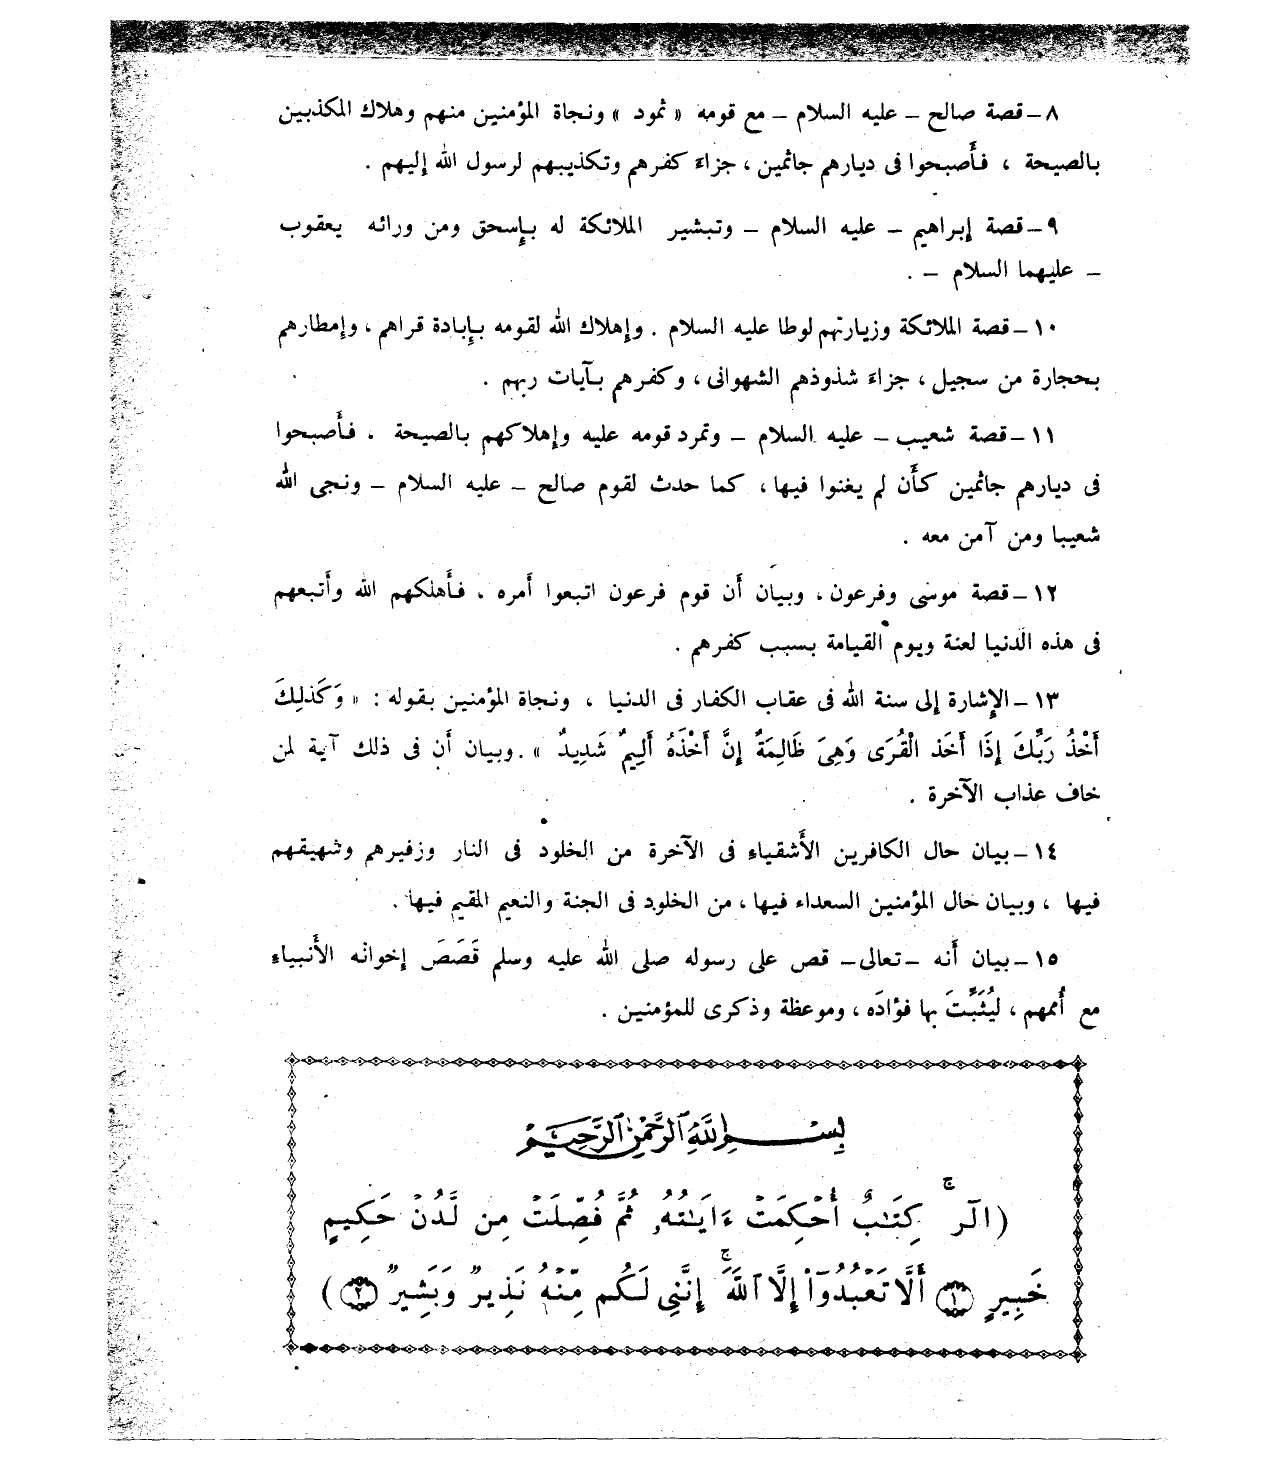 ٨ – قصة صالح – عليه السلام – مع قومه « ثمود » ونجاة المؤمنين منهم وهلاك المكذبين
بالصيحة ، فأصبحوا فى ديارهم جاثمين ، جزاءَ كفرهم وتكذيبهم لرسول الله إليهم .
٩ – قصة إبراهيم – عليه السلام – وتبشير الملائكة له بإسحق ومن ورائه يعقوب
– عليهما السلام – .
١٠ – قصة الملائكة وزيارتهم لوطا عليه السلام . وإهلاك الله لقومه بإبادة قراهم ، وإمطارهم
بحجارة من سجيل ، جزاءَ شذوذهم الشهوانى ، وكفرهم بآيات ربهم .
١١ – قصة شعيب – عليه السلام – وتمرد قومه عليه وإهلاكهم بالصيحة ، فأصبحوا
فى ديارهم جاثمين كأن لم يغنوا فيها ، كما حدث لقوم صالح – عليه السلام – ونجى الله
شعيبا ومن آمن معه .
١٢ – قصة موسى وفرعون ، وبيان أن قوم فرعون اتبعوا أمره ، فأهلكهم الله وأتبعهم
فى هذه الدنيا لعنة ويوم القيامة بسبب كفرهم .
١٣ – الإشارة إلى سنة الله فى عقاب الكفار فى الدنيا ، ونجاة المؤمنين بقوله : « وَكَذلِكَ
أَخْذُ رَبِّكَ إِذَا أَخَذ الْقُرَى وَهِىَ ظَالِمَةٌ إِنَّ أَخْذَهُ أَلِيمٌ شَدِيدٌ » . وبيان أن فى ذلك آية لمن
خاف عذاب الآخرة .
١٤ – بيان حال الكافرين الأشقياء فى الآخرة من الخلود فى النار وزفيرهم وشهيقهم
فيها ، وبيان حال المؤمنين السعداء فيها ، من الخلود فى الجنة والنعيم المقيم فيها .
١٥ – بيان أنه – تعالى – قص على رسوله صلى الله عليه وسلم قَصَصَ إخوانه الأنبياءِ
مع أُممهم ، ليُثَبِّتَ بها فؤادَه ، وموعظة وذكرى للمؤمنين .
بِسْمِ ٱللَّهِ ٱلرَّحْمَٰنِ ٱلرَّحِيمِ
(الٓر ۚ كِتَٰبٌ أُحْكِمَتْ ءَايَٰتُهُۥ ثُمَّ فُصِّلَتْ مِن لَّدُنْ حَكِيمٍ
خَبِيرٍ ١ أَلَّا تَعْبُدُوٓا۟ إِلَّا ٱللَّهَ ۚ إِنَّنِى لَكُم مِّنْهُ نَذِيرٌ وَبَشِيرٌ ٢)